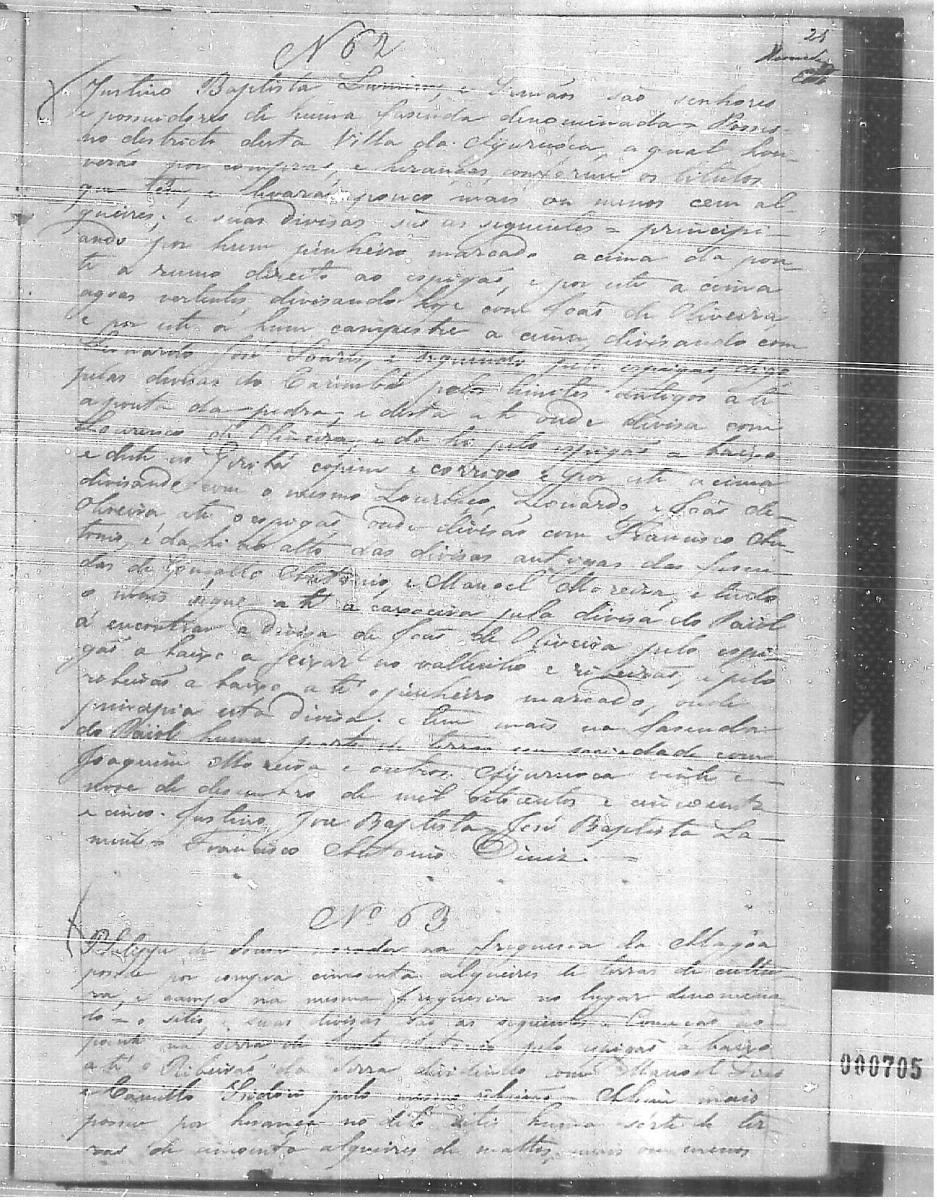 Nº 62
21
Justino Baptista e Irmãos são senhores
e possuidores de huma fasenda denominada = Posses
no districto desta Villa da Ajuruoca, a qual hou-
verão por compras, e heranças, conforme os titulos
que têm, e levará pouco mais ou menos cem al-
queires; e suas divisas são as seguintes = principi-
ando por hum pinheiro marcado acima da pon-
te a rumo direito ao espigão, e por este a cima
agoas vertentes divisando hoje com João de Oliveira
e por este á hum campestre a cima, divisando com
Leonardo José e seguindo pelo espigão, digo
pelas divisas do Carimbá pelos limites antigos até
a ponta da pedra, e desta até onde divisa com
Lourenço de Oliveira, e da hi pelo espigão a baixo
e deste ao e corrigo e por este acima
divisando com o mesmo Lourenço, Leonardo, e João de
Oliveira até o espigão, onde divisão com Francisco An-
tonio, e da hi no alto das divisas antigas das fasen-
das de Gonsallo Antonio, e Manoel Moreira, e tudo
o mais segue até a capoeira pela divisa do Paiol
á encontrar a divisa de João de Oliveira pelo espi-
gão a baixo a feixar no vallinho e ribeirão, e pelo
ribeirão a baixo até o pinheiro marcado, onde
principia esta divisa; e tem mais na fasenda
do Paiol huma parte de terras em sociedade com
Joaquim Moreira e outros. Ajuruoca vinte e
nove de desembro de mil oitocentos e cincoenta
e cinco. Justino José Baptista = José Baptista La-
Francisco Antonio Diniz. =
Nº 63
Philippe de Souza morador na freguesia da Alagôa
possue por compra cincoenta alqueires de terras de cultu-
ra, e campo na mesma freguesia no lugar denomina-
do = o sitio e suas divisas são as seguintes = Começão no
na serra de pelo espigão a baixo
até o Ribeirão da Serra dividindo com Manoel
e Camillo Isidoro pelo mesmo ribeirão = Alem mais
possue por herança no dito sitio huma sorte de ter-
ras de cincoenta alqueires de mattos, mais ou menos
000705